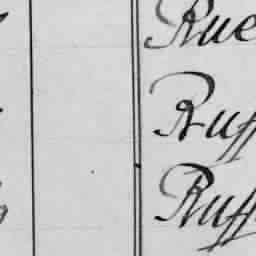 Rue
Ruff
Ruff